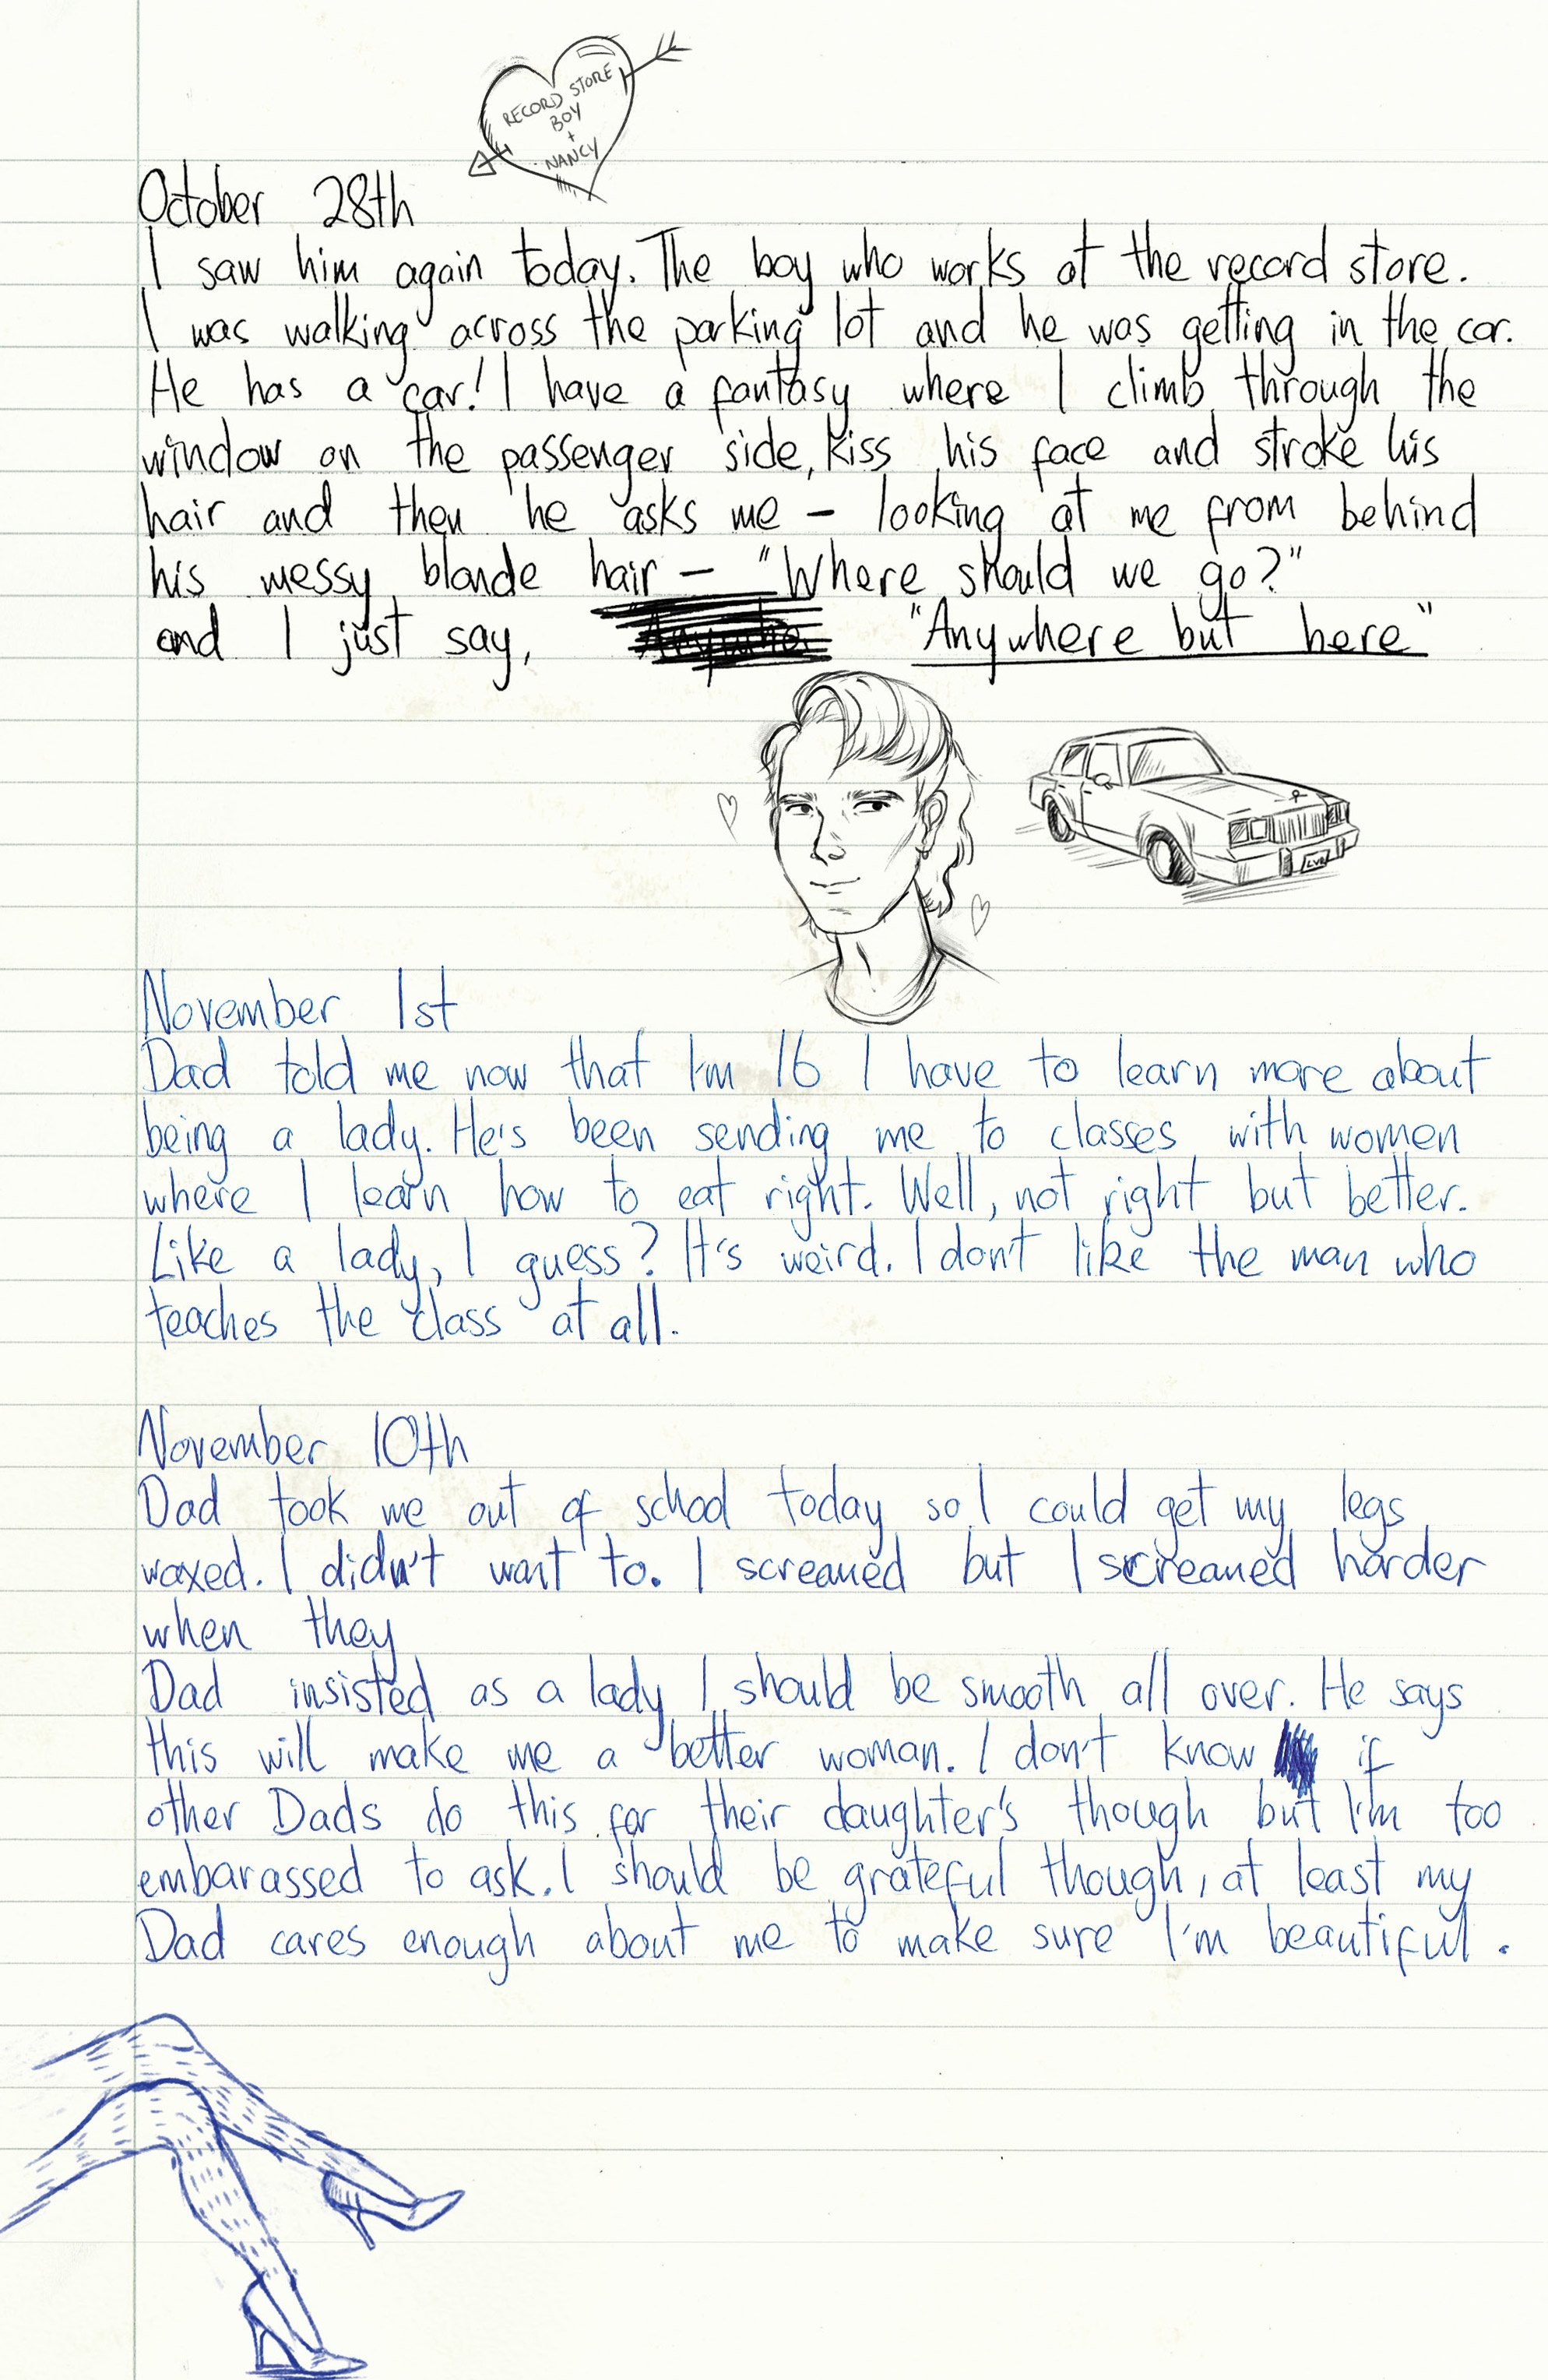 RECORD STORE
BOY
+
NANCY
October 28th
I saw him again today. The boy who works at the record store.
I was walking across the parking lot and he was getting in the car.
He has a car! I have a fantasy where I climb through the
window on the passenger side, kiss his face and stroke his
hair and then he asks me - looking at me from behind
his messy blonde hair - "Where should we go?"
and I just say, "Anywhere but here"
LVR
November 1st
Dad told me now that I'm 16 I have to learn more about
being a lady. He's been sending me to classes with women
where I learn how to eat right. Well, not right but better.
Like a lady, I guess? It's weird. I don't like the man who
teaches the class at all.
November 10th
Dad took me out of school today so I could get my legs
waxed. I didn't want to. I screamed but I screamed harder
when they
Dad insisted as a lady I should be smooth all over. He says
this will make me a better woman. I don't know if
other Dads do this for their daughter's though but I'm too
embarassed to ask. I should be grateful though, at least my
Dad cares enough about me to make sure I'm beautiful.